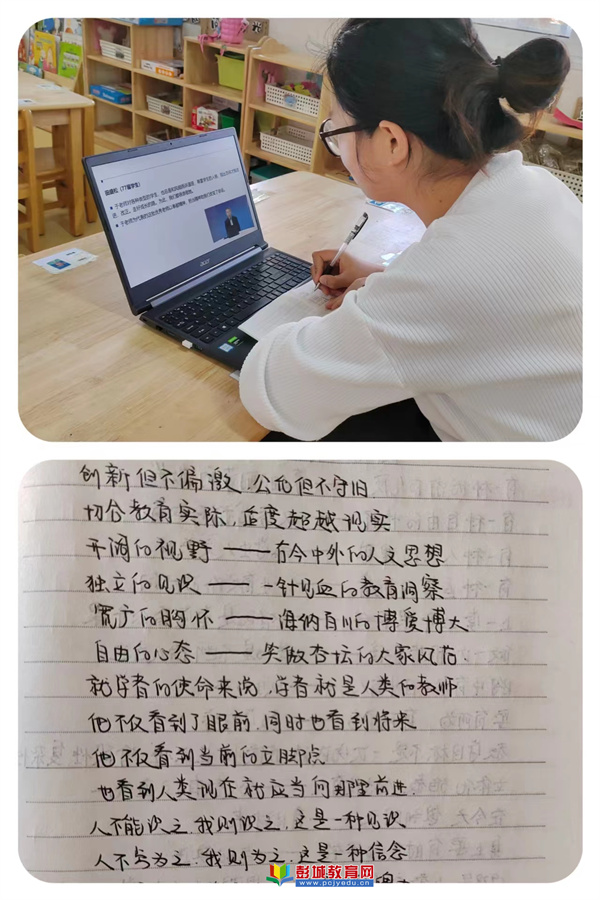 acer
创新但不偏激 公允但不守旧
切合教育实际,适度超越现实
开阔的视野——古今中外的人文思想
独立的见识——一针见血的教育洞察
宽广的胸怀——海纳百川的博爱博大
自由的心态——笑傲杏坛的大家风范.
就学者的使命来说,学者就是人类的教师
他不仅看到了眼前,同时也看到将来
他不仅看到当前的立脚点
也看到人类现在就应当向那里前进.
人不能识之,我则识之,这是一种见识
人不与为之,我则为之,这是一种信念
彭城教育网
www.pcjyedu.cn